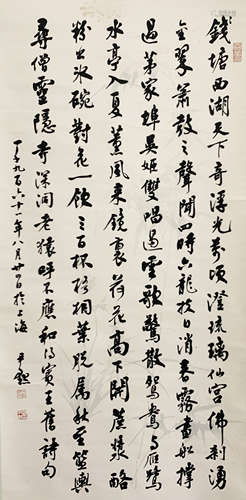 錢塘西湖天下奇浮光萬頃澄琉璃仙宮佛刹湧
金翠簫鼓之聲聞四時六龍挾日消春霧畫船撐
過茅家埠吳姬雙唱遏雲歌驚散鴛鴦與雁鶩
水亭入夏薰風來鏡裏荷花高下開蔗漿酪
粉出冰碗對花一飲三百杯梧桐葉脫屬秋籃輿
尋僧靈隱寺深洞老猿呼不應和得賓王舊詩句
一千九百六十一年八月廿日於上海 尹默